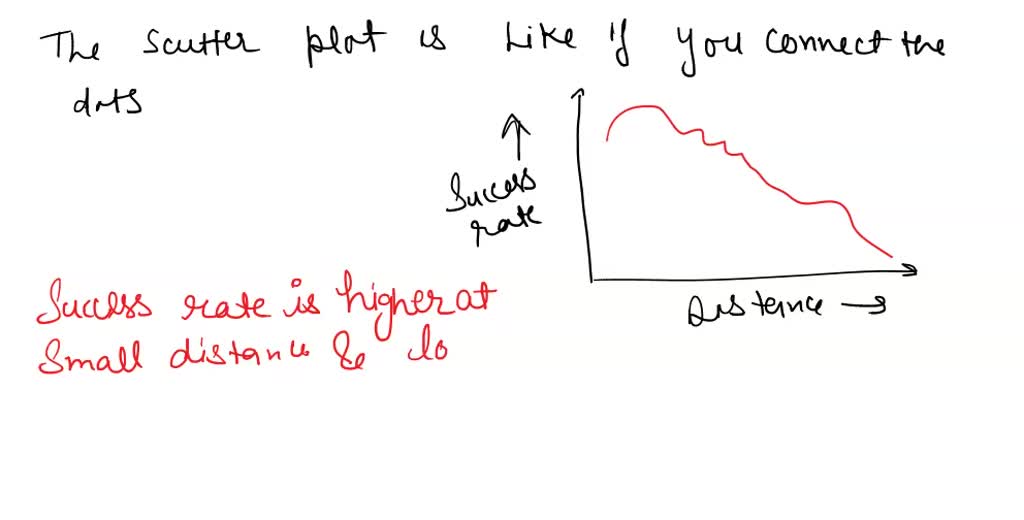 The scutter plot is like if you connect the
dots
Success
rate
Distance
Success rate is higher at
small distance & lo